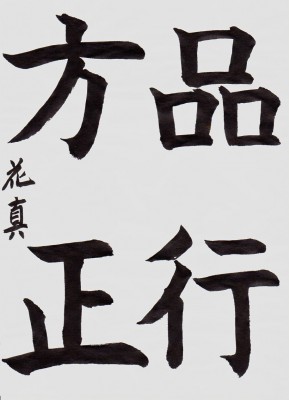 品行
方正
花真